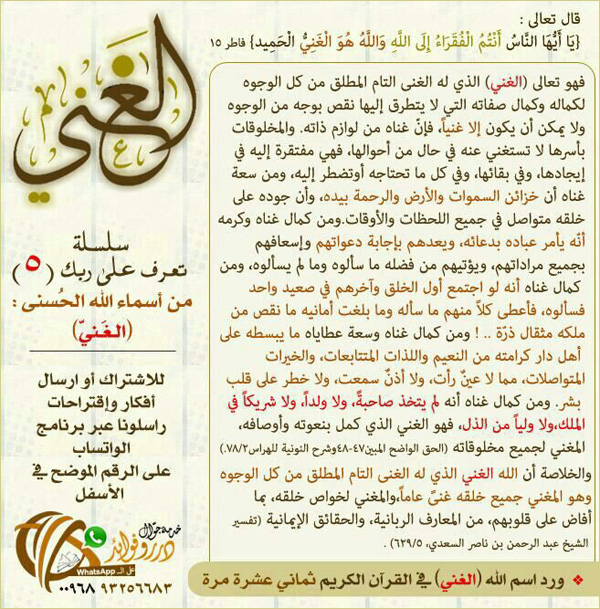 قال تعالى :
{يَا أَيُّهَا النَّاسُ أَنْتُمُ الْفُقَرَاءُ إِلَى اللَّهِ وَاللَّهُ هُوَ الْغَنِيُّ الْحَمِيد} فاطر ١٥
فهو تعالى (الغني) الذي له الغنى التام المطلق من كل الوجوه
لكماله وكمال صفاته التي لا يتطرق إليها نقص بوجه من الوجوه
ولا يمكن أن يكون إلا غنياً، فإنّ غناه من لوازم ذاته. والمخلوقات
بأسرها لا تستغني عنه في حال من أحوالها، فهي مفتقرة إليه في
إيجادها، وفي بقائها، وفي كل ما تحتاجه أوتضطر إليه، ومن سعة
غناه أن خزائن السموات والأرض والرحمة بيده، وأن جوده على
خلقه متواصل في جميع اللحظات والأوقات.ومن كمال غناه وكرمه
أنّه يأمر عباده بدعائه، ويعدهم بإجابة دعواتهم وإسعافهم
بجميع مراداتهم، ويؤتيهم من فضله ما سألوه وما لم يسألوه، ومن
كمال غناه أنه لو اجتمع أول الخلق وآخرهم في صعيد واحد
فسألوه، فأعطى كلاً منهم ما سأله وما بلغت أمانيه ما نقص من
ملكه مثقال ذرّة .. ! ومن كمال غناه وسعة عطاياه ما يبسطه على
أهل دار كرامته من النعيم واللذات المتتابعات، والخيرات
المتواصلات، مما لا عينٌ رأت، ولا أذنٌ سمعت، ولا خطر على قلب
بشر. ومن كمال غناه أنه لم يتخذ صاحبةً، ولا ولداً، ولا شريكاً في
الملك،ولا ولياً من الذل، فهو الغني الذي كمل بنعوته وأوصافه،
المغني لجميع مخلوقاته (الحق الواضح المبين٤٧-٤٨وشرح النونية للهراس٧٨/٢.)
والخلاصة أن الله الغني الذي له الغنى التام المطلق من كل الوجوه
وهو المغني جميع خلقه غنىً عاماً،والمغني لخواص خلقه، بما
أفاض على قلوبهم، من المعارف الربانية، والحقائق الإيمانية (تفسير
الشيخ عبد الرحمن بن ناصر السعدي، ٦٢٩/٥) .
ورد اسم الله (الغني) في القرآن الكريم ثماني عشرة مرة
الغني
سلسلة
تعرف على ربك (٥)
من أسماء الله الحُسنى :
(الغَنيّ)
للاشتراك أو ارسال
أفكار وإقتراحات
راسلونا عبر برنامج
الواتساب
على الرقم الموضح في
الأسفل
خدمة جوال
درر وفوائد
على الـ WhatsApp
٠٠٩٦٨ ٩٣٢٥٦٦٨٣